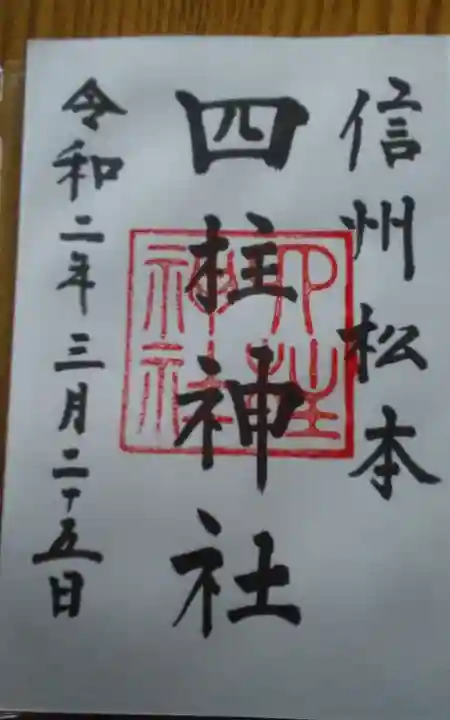 信州松本
四柱神社
令和二年三月二十五日
四柱
神社